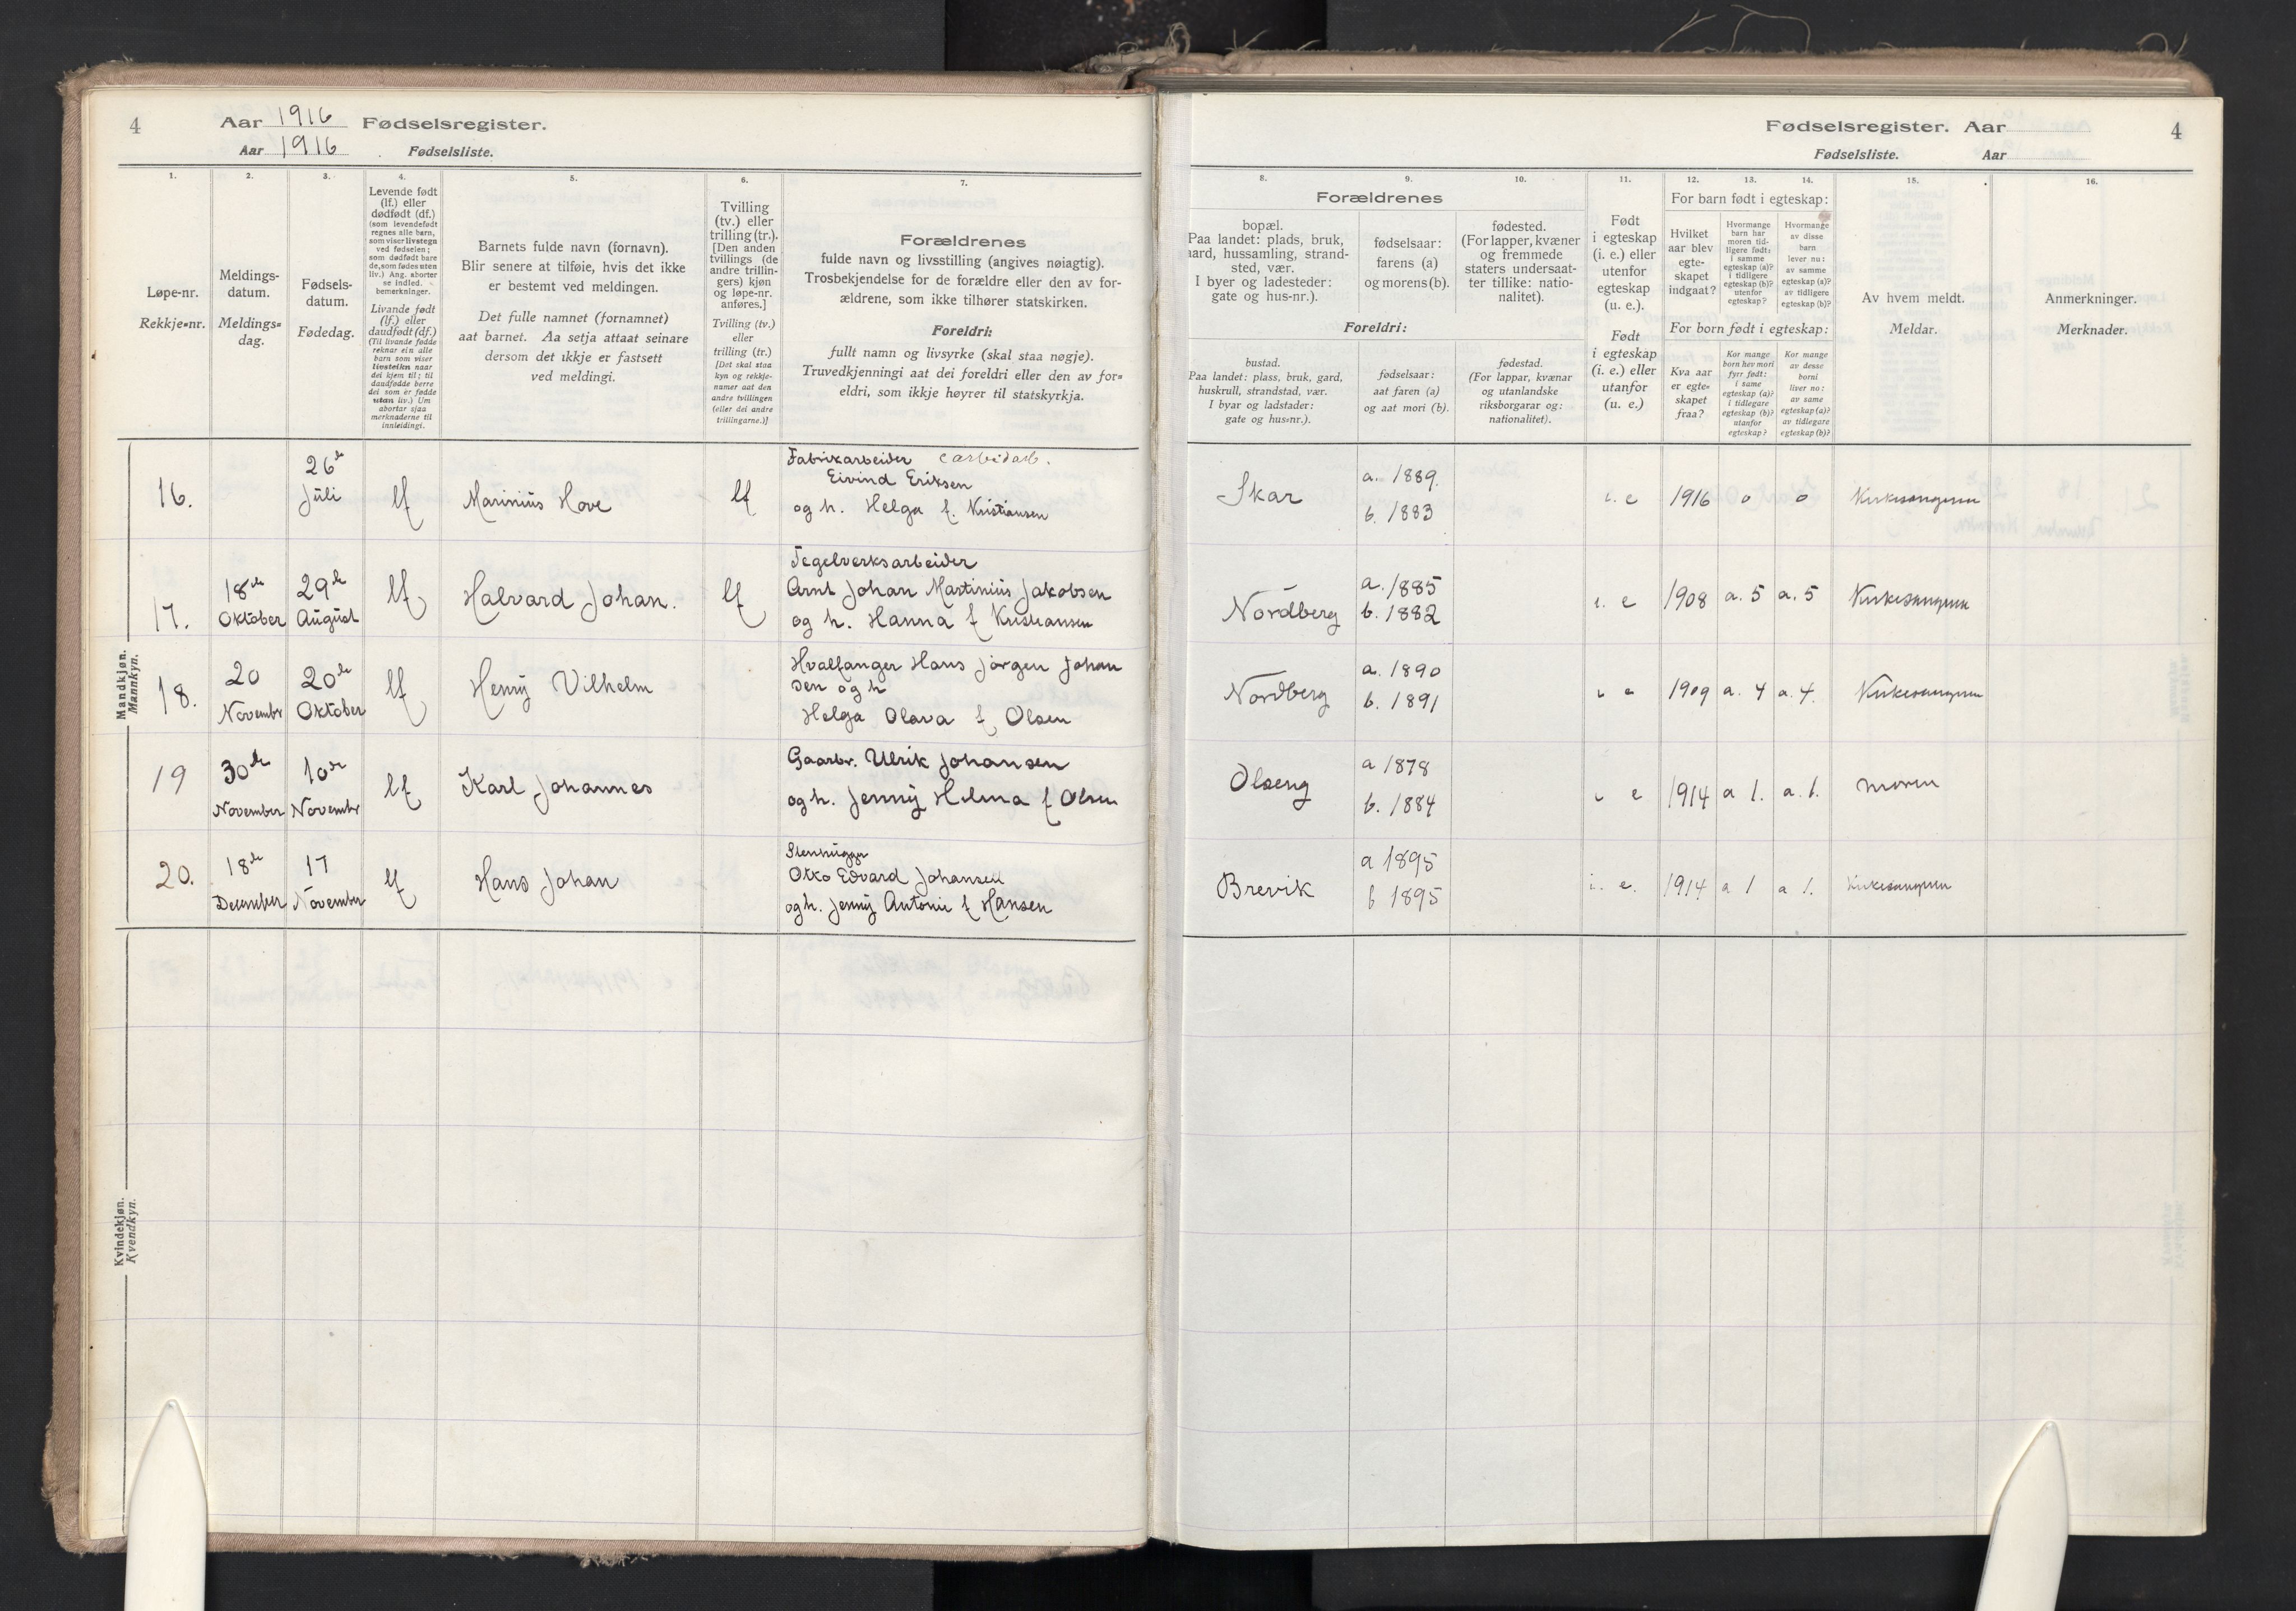 4
Aar 1916 Fødselsregister.
Aar 1916 Fødselsliste.
1.
2.
3.
4.
5.
6.
7.
Løpe-nr.
Rekkje=nr.
Meldings-
datum.
Meldings=
dag.
Fødsels-
datum.
Fødedag.
Levende født
(lf.) eller
dødfødt (df.)
(som levendefødt
regnes alle barn,
som viser livstegn
ved fødselen;
som dødfødt bare
de, som fødes uten
liv.) Ang. aborter
se indled.
bemerkninger.
Livande født
(lf.) eller
daudfødt (df.)
(Til livande fødde
reknar ein alle
barn som viser
livsteikn naar
dei kjem til; til
daudfødde berre
dei som er fødde
utan liv.) Um
abortar sjaa
merknaderne til
innleidingi.
Barnets fulde navn (fornavn).
Blir senere at tilføie, hvis det ikke
er bestemt ved meldingen.
Det fulle namnet (fornamnet)
aat barnet. Aa setja attaat seinare
dersom det ikkje er fastsett
ved meldingi.
Tvilling
(tv.) eller
trilling (tr.).
[Den anden
tvillings (de
andre trillin-
gers) kjøn
og løpe-nr.
anføres.]
Tvilling (tv.)
eller
trilling (tr.)
[Det skal staa
kyn og rekkje-
numer aat den
andre tvillingen
(eller dei andre
trillingarne.)]
Forældrenes
fulde navn og livsstilling (angives nøiagtig).
Trosbekjendelse for de forældre eller den av for-
ældrene, som ikke tilhører statskirken.
Foreldri:
fullt namn og livsyrke (skal staa nøgje).
Truvedkjenningi aat dei foreldri eller den av for=
eldri, som ikkje høyrer til statskyrkja.
Mandkjøn.
Mannkyn.
16.
26de
Juli
lf
Marinius Hove
lf
Fabrikarbeider carbidarb.
Eivind Eriksen
og h. Helga f. Kristiansen
17.
18de
Oktober
29de
August
lf
Halvard Johan.
lf
Tegelverksarbeider
Arnt Johan Martinius Jakobsen
og h. Hanna f Kristiansen
18.
20
Novembr
20de
Oktober
lf
Henry Vilhelm
Hvalfanger Hans Jörgen Johan
sen og h
Helga Olava f Olsen
19
30de
November
10de
Novembr
lf
Karl Johannes
Gaarbr. Ulrik Johansen
og h. Jenny Helma f Olsen
20.
18de
December
17
November
lf
Hans Johan
Stenhugger
Otto Edvard Johansen
og h. Jenny Antonie f Hansen
Kvindekjøn.
Kvendkyn.
Fødselsregister. Aar
4
Fødselsliste. Aar
8.
9.
10.
11.
12.
13.
14.
15.
16.
Forældrenes
bopæl.
Paa landet: plads, bruk,
aard, hussamling, strand-
sted, vær.
I byer og ladesteder:
gate og hus-nr.).
fødselsaar:
farens (a)
og morens (b).
fødested.
(For lapper, kvæner
og fremmede
staters undersaat-
ter tillike: natio-
nalitet).
Foreldri:
bustad.
Paa landet: plass, bruk, gard,
huskrull, strandstad, vær.
I byar og ladstader:
gate og hus=nr.).
fødselsaar:
aat faren (a)
og aat mori (b).
fødestad.
(For lappar, kvænar
og utanlandske
riksborgarar og:
nationalitet).
Født
i egteskap
(i. e.) eller
utenfor
egteskap
(u. e.).
Født
i egteskap
(i. e.) eller
utanfor
(u. e.)
For barn født i egteskap:
Hvilket
aar blev
egte-
skapet
indgaat?
Hvormange
barn har
moren tid-
ligere født:
i samme
egteskap (a)?
i tidligere
egteskap (b)?
utenfor
egteskap?
Hvormange
av disse
barn
lever nu:
av samme
egteskap (a)?
av tidligere
egteskap (b)?
For born født i egteskap:
Kva aar
er egte=
skapet
fraa?
Kor mange
born hev mori
fyrr født:
i same
egteskap (a)?
i tidlegare
egteskap (b)?
utanfor
egteskap?
Kor mange
av desse
borni
liver no:
av same
egteskap (a)?
av tidlegare
egteskap (b)?
Av hvem meldt.
Meldar.
Anmerkninger.
Merknader.
Skar
a. 1889.
b. 1883
i. e
1916
0
0
Kirkesangeren
Nordberg
a. 1885
b. 1882
i. e
1908
a. 5
a. 5
Kirkesangeren
Nordberg
a. 1890
b. 1891
i e
1909
a. 4
a. 4.
Kirkesangeren
Olseng
a 1878
b. 1884
i e
1914
a 1.
a. 1.
moren
Brevik
a 1895
b 1895
i. e.
1914
a 1
a 1.
Kirkesangeren